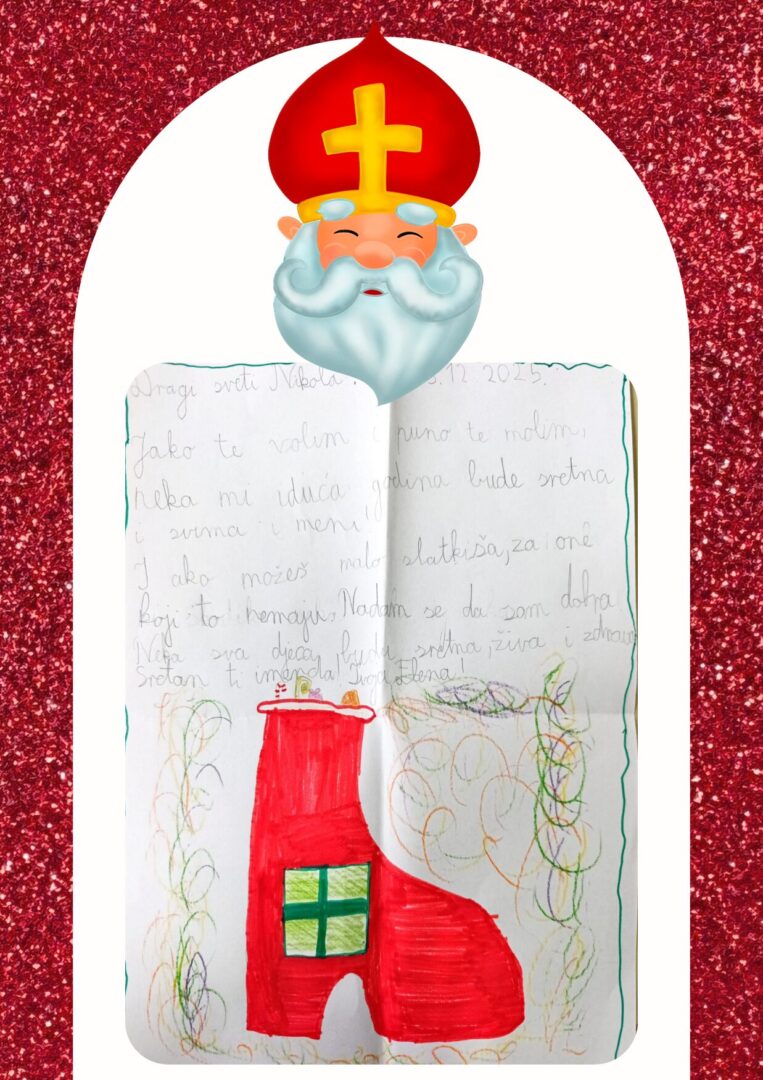 Dragi sveti Nikola. 3.12.2025.
Jako te volim i puno te molim,
neka mi iduća godina bude sretna
i svima i meni!
I ako možeš malo slatkiša, za one
koji to nemaju. Nadam se da sam dobra.
Neka sva djeca budu sretna, živa i zdrava
Sretan ti imendan! Tvoja Elena!